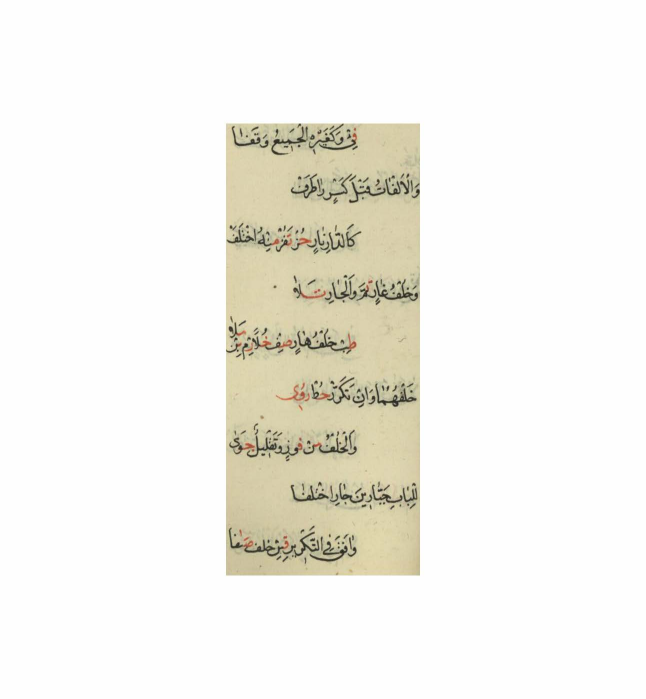 فِيْ وَكَغَيْرِهِ الْجَمِيعُ وَقَفَا
وَالْأَلِفَاتُ قَبْلَ كَسْرِ رَا طَرَفْ
كَالدَّارِ نَارٍ حُزْ تَفُزْ مِنْهُ اخْتُلِفْ
وَخُلْفُ غَارٍ تَمَّ وَالْجَارِ تَلَا
طِبْ خُلْفُ هَارٍ صِفْ حُلًا رُمْ بِنْ مَلَا
خُلْفُهُمَا وَإِنْ تُكَرَّرْ حُطْ رَوَى
وَالْخُلْفُ مِنْ فَوْزٍ وَتَقْلِيلٌ جَوَى
لِلْبَابِ جَبَّارِينَ جَارِ اخْتَلَفَا
وَافَقَ فِي التَّكْرِيرِ قِسْ خُلْفٌ ضَفَا